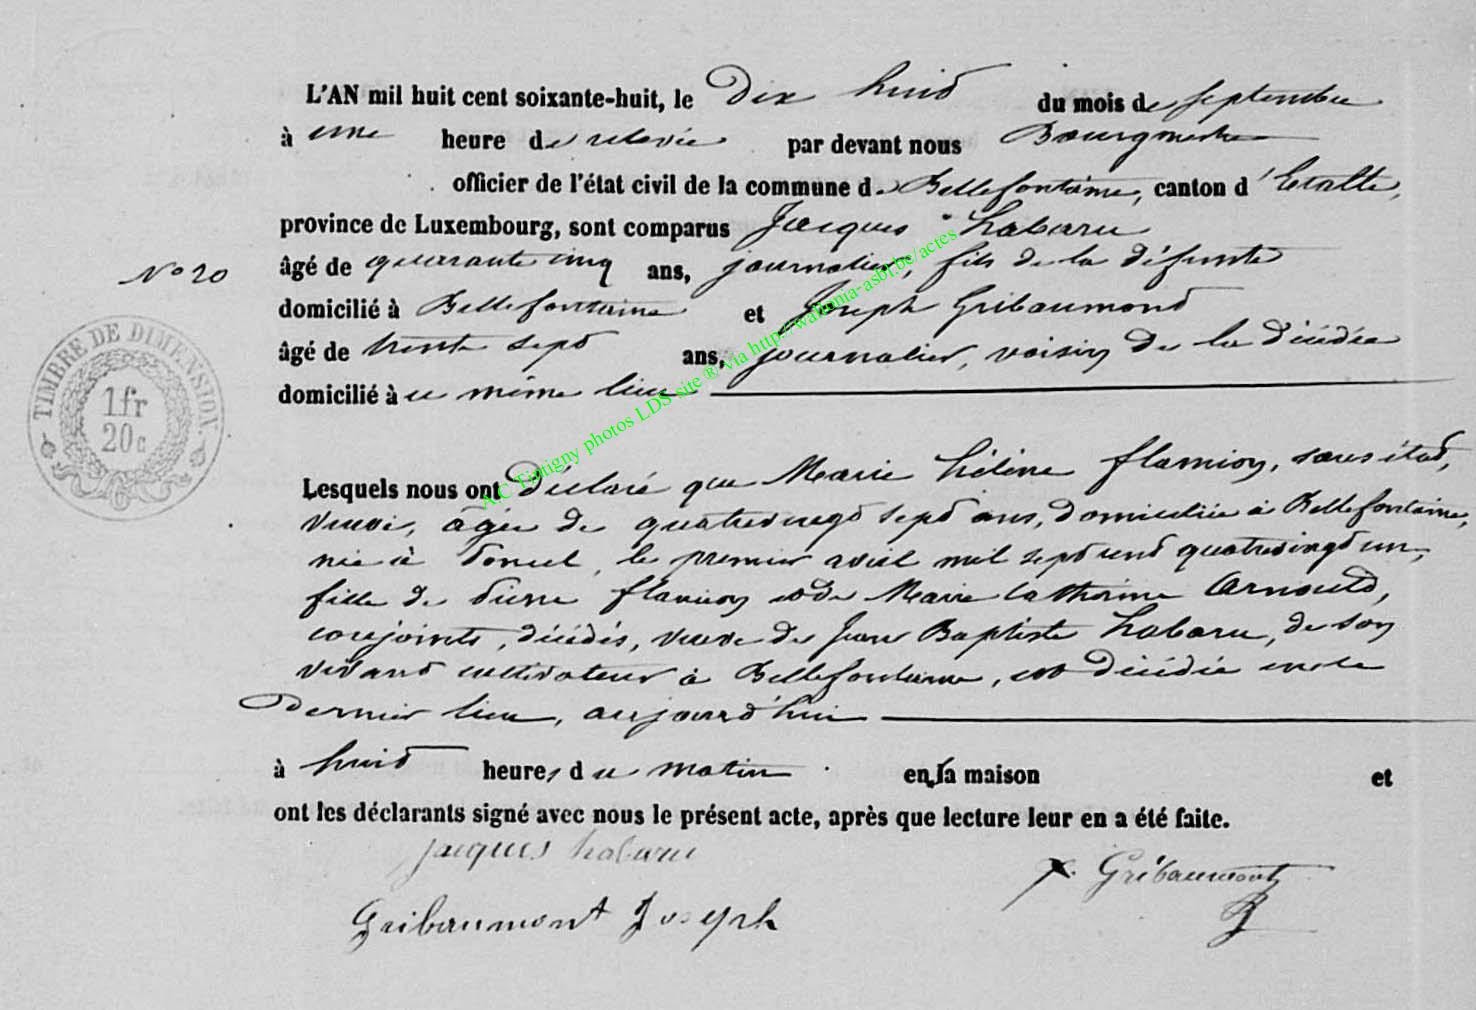 L'AN mil huit cent soixante-huit, le Dix huit du mois de septembre
à une heure de relevée par devant nous Bourgmestre
officier de l'état civil de la commune de Bellefontaine, canton d'Etalle,
province de Luxembourg, sont comparus Jacques Habaru
N° 20
âgé de quarante cinq ans, journalier, fils de la défunte
domicilié à Bellefontaine et Joseph Gribaumont
âgé de trente sept ans, journalier, voisin de la décédée
domicilié à u même lieu
Lesquels nous ont Déclaré que Marie Hélène flamion, sans état,
veuve, âgée de quatrevingt sept ans, domiciliée à Bellefontaine,
née à le premier avril mil sept cent quatrevingt un,
fille de Pierre flamion et de Marie Catherine Arnould,
conjoints, décédés, veuve de Jean Baptiste Habaru, de son
vivant cultivateur à Bellefontaine, est décédée en ce
Dernier lieu, aujourd'hui
à huit heures du matin en sa maison et
ont les déclarants signé avec nous le présent acte, après que lecture leur en a été faite.
jacques habaru
Gribaumont
Gribaumont Joseph
TIMBRE DE DIMENSION.
1fr
20c
AC Tintigny photos LDS site ® via http://wallonia-asbl.be/actes